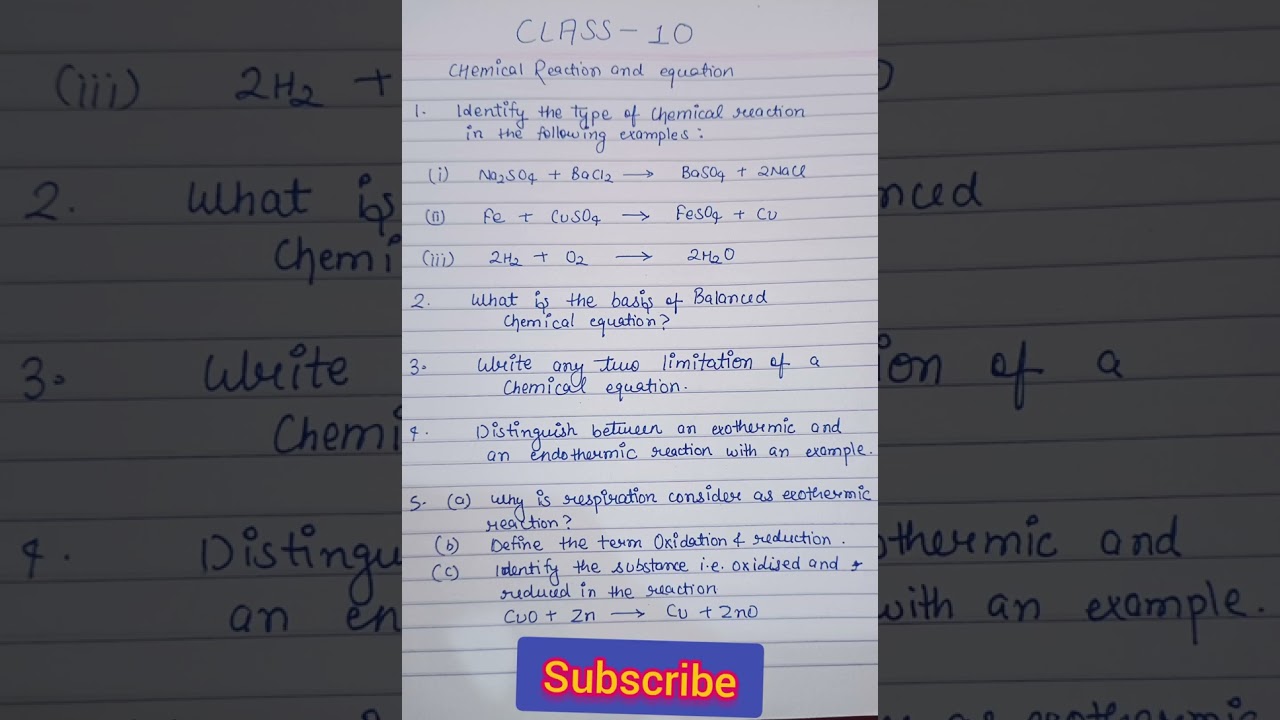 CLASS - 10
Chemical Reaction and equation
1. Identify the type of chemical reaction
in the following examples:
(i) Na₂SO₄ + BaCl₂ → BaSO₄ + 2NaCl
(ii) Fe + CuSO₄ → FeSO₄ + Cu
(iii) 2H₂ + O₂ → 2H₂O
2. What is the basis of Balanced
Chemical equation?
3. Write any two limitation of a
Chemical equation.
4. Distinguish between an exothermic and
an endothermic reaction with an example.
5. (a) Why is respiration consider as exothermic
reaction?
(b) Define the term Oxidation & reduction.
(c) Identify the substance i.e. oxidised and
reduced in the reaction
CuO + Zn → Cu + ZnO
Subscribe
(iii) 2H₂ +
2. What is
Chemi
nced
3. Write
Chemi
ion of a
4. Distingu
an en
thermic and
with an example.